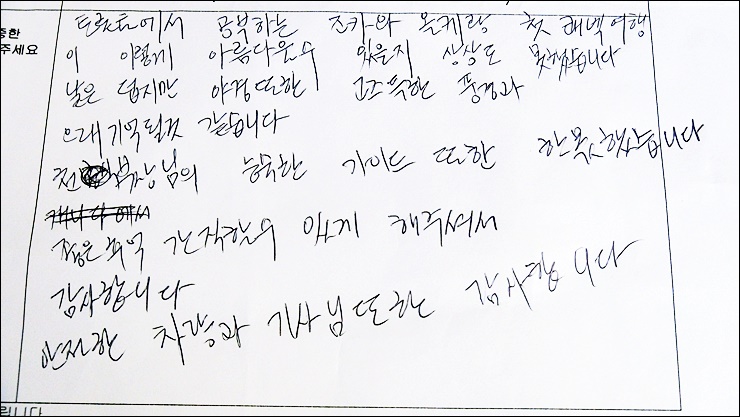 중한
주세요
토론토에서 공부하는 조카와 몰케랑 첫 패넉여행
이 이렇게 아름다운수 있을지 상상도 못했습니다
날은 덥지만 야경또한 고즈늑한 풍경과
오래 기억될것 같습니다
전 부장님의 능숙한 가이드 또한 한몫했습니다
캐나다에서
젊은추억 간직할수 있게 해주셔서
감사합니다
안전한 차량과 기사님또한 감사합니다
립니다